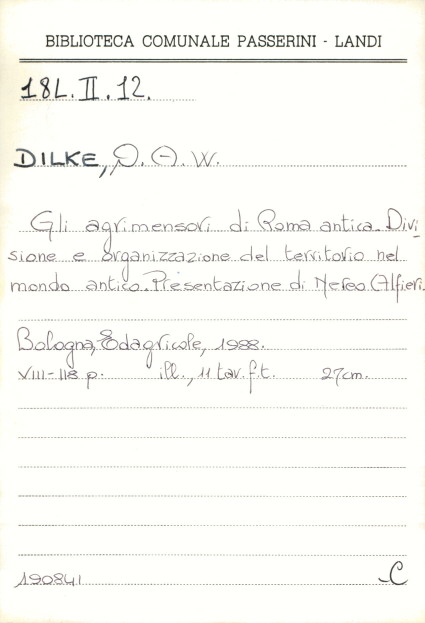 BIBLIOTECA COMUNALE PASSERINI - LANDI
18L.II.12.
DILKE, O. A. W.
Gli agrimensori di Roma antica. Divi-
sione e organizzazione del territorio nel
mondo antico. Presentazione di Nereo Alfieri.
Bologna, Edagricole, 1988.
VIII-118 p. ill., 11 tav. f. t. 27 cm.
190841 C